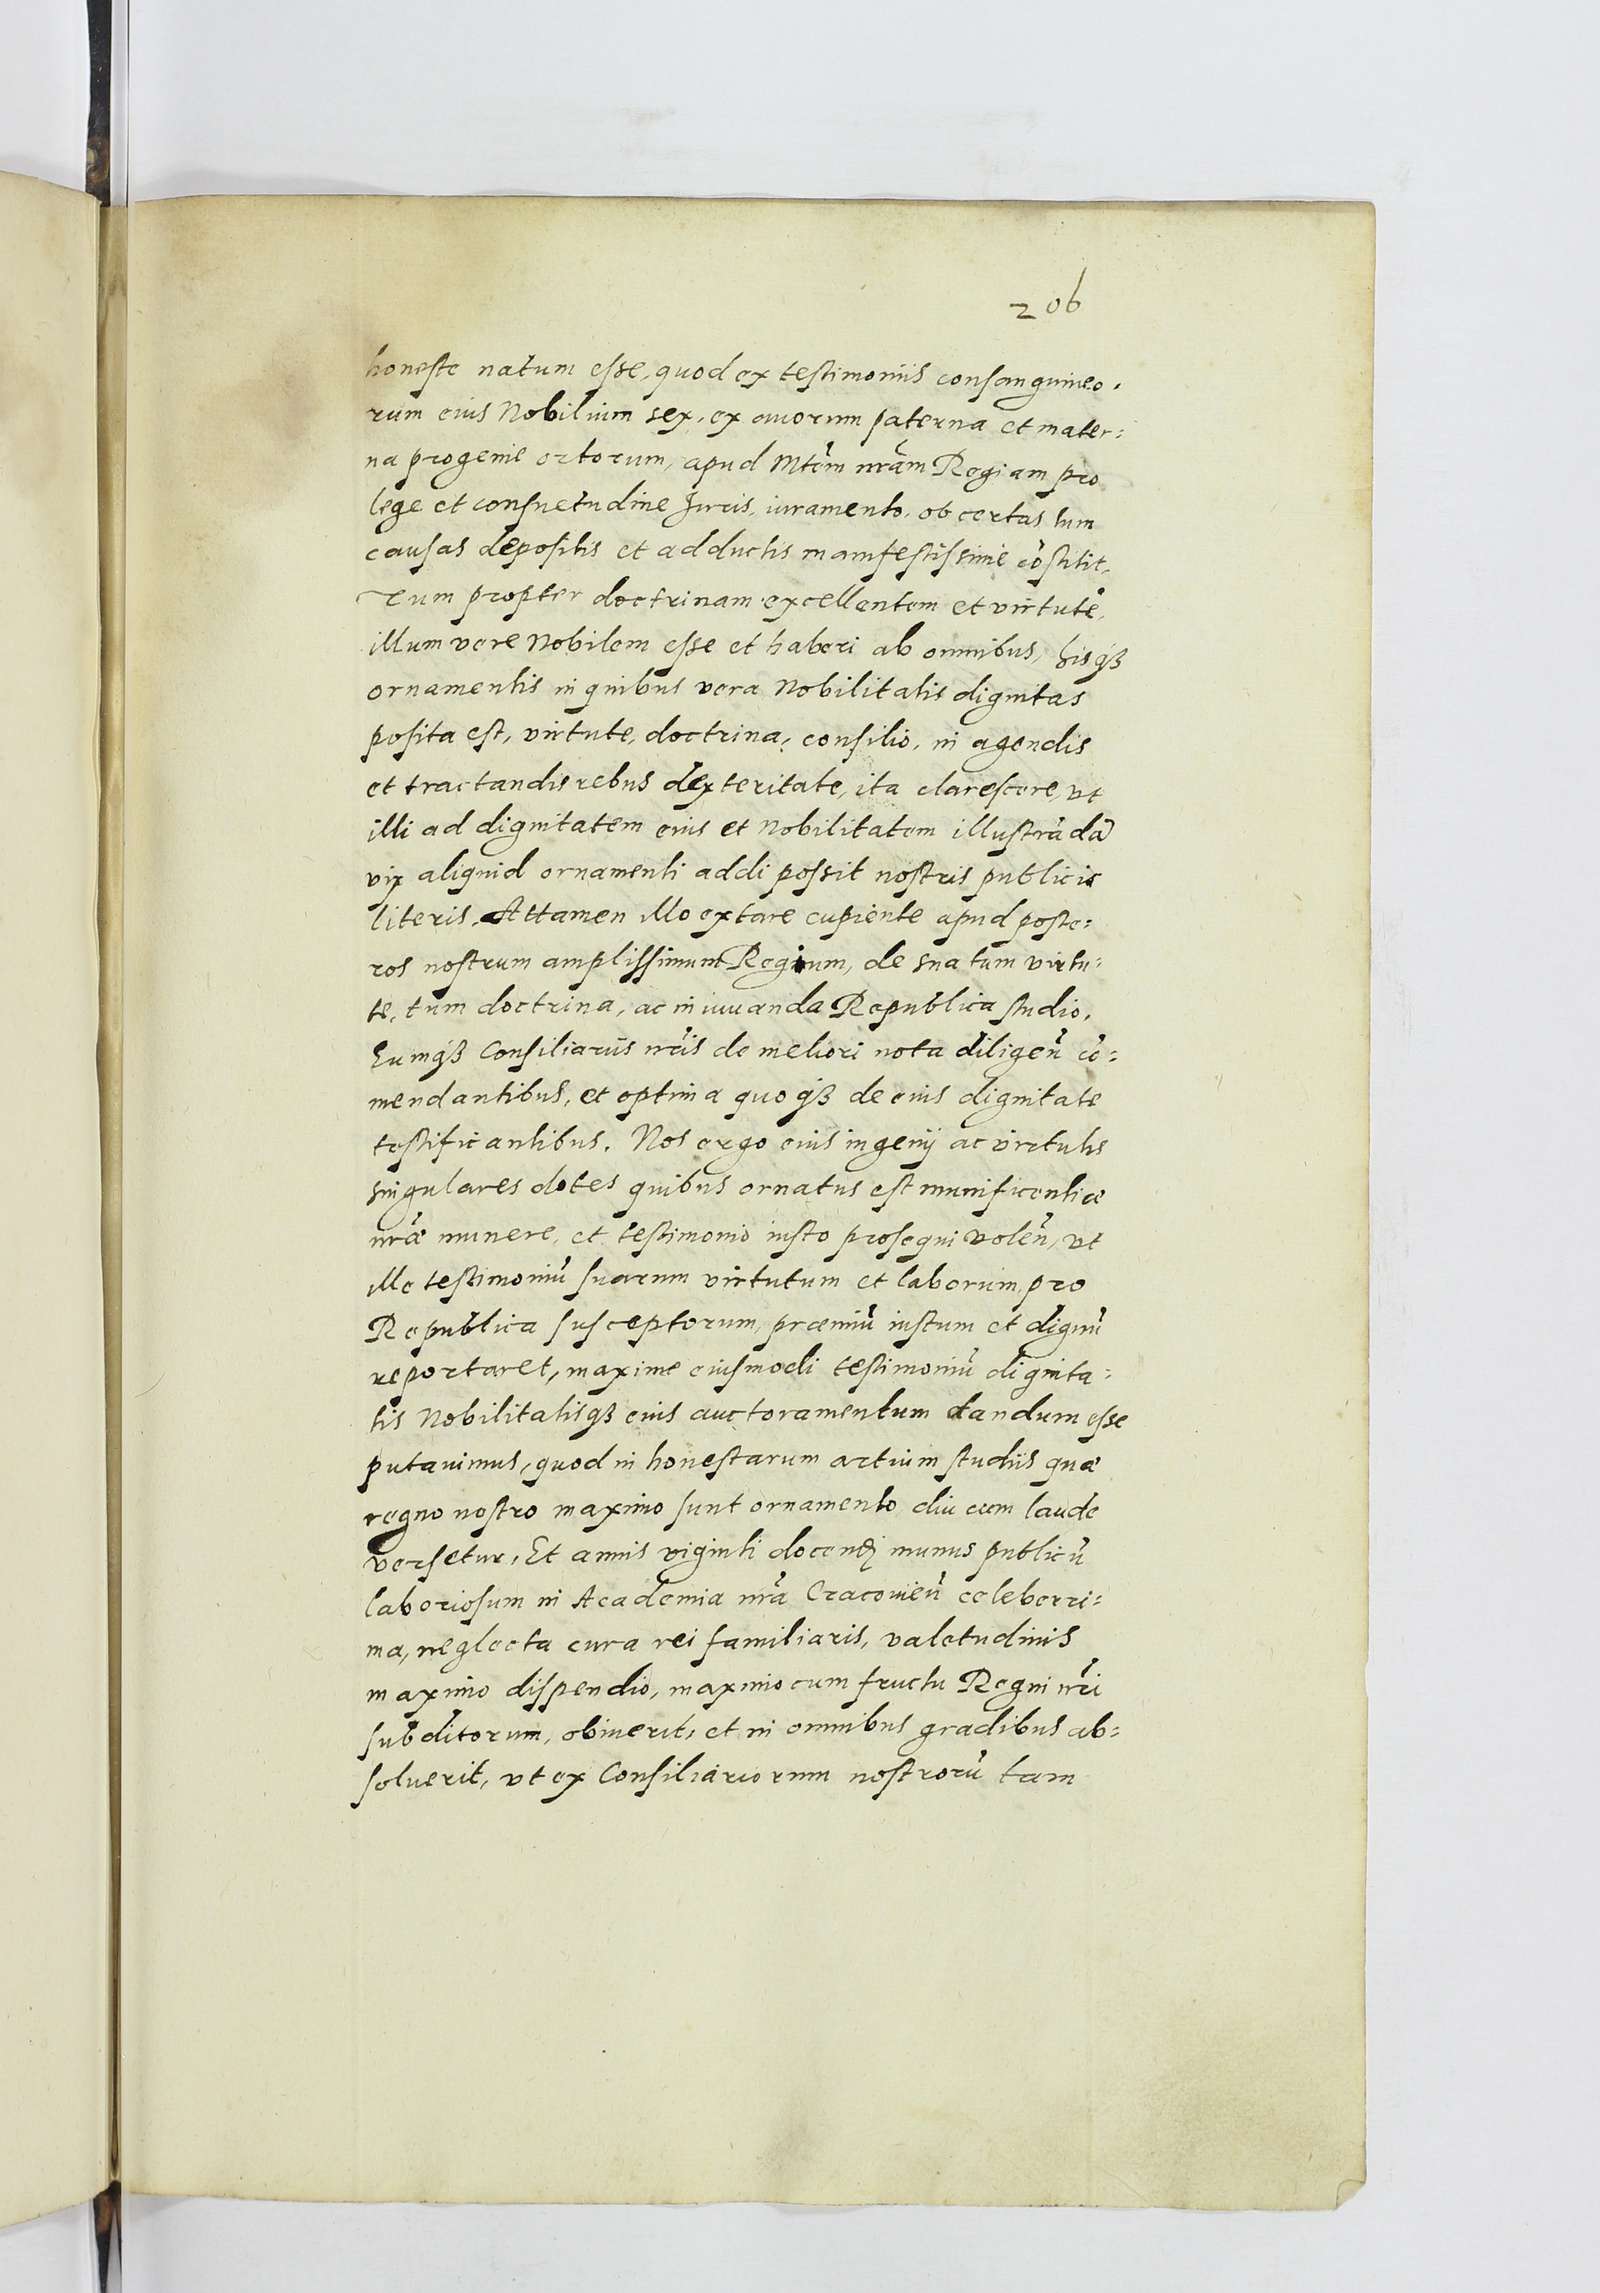 206
honeste natum esse, quod ex testimoniis consanguineo,
rum eius Nobilium sex, ex avorum paterna et mater:
na progenie ortorum, apud Mtẽm nr̃am Regiam pro
lege et consuetudine Juris, iuramento, ob certas tum
causas depositis et adductis manifestissime cõstitit,
Tum propter doctrinam excellentem et virtutẽ,
illum vere Nobilem esse et haberi ab omnibus, hisqꝫ
ornamentis in quibus vera Nobilitatis dignitas
posita est, virtute, doctrina, consilio, in agendis
et tractandis rebus dexteritate, ita clarescere, vt
illi ad dignitatem eius et Nobilitatem illustrãdã
vix aliquid ornamenti addi possit nostris publicis
literis. Attamen illo extare cupiente apud poste:
ros nostrum amplissimum Regium, de sua tum virtu:
te, tum doctrina, ac in iuuanda Republica studio,
Eumqꝫ Consiliariis nr̃is de meliori nota diligeñ cõ:
mendantibus, et optima quoqꝫ de eius dignitate
testificantibus. Nos ergo eius ingenij ac virtutis
singulares dotes quibus ornatus est munificentiæ
nr̃æ munere, et testimonio iusto prosequi voleñ, vt
ille testimoniũ suarum virtutum et laborum pro
Republica susceptorum, præmiũ iustum et dignũ
reportaret, maxime eiusmodi testimoniũ dignita:
tis Nobilitatisqꝫ eius auctoramentum dandum esse
putauimus, quod in honestarum artium studiis quæ
regno nostro maximo sunt ornamento diu cum laude
versetur, Et annis viginti docendj munus publicũ
laboriosum in Academia nr̃a Cracovieñ celeberri:
ma, neglecta cura rei familiaris, valetudinis
maximo dispendio, maximo cum fructu Regni nr̃i
subditorum, obiuerit, et in omnibus gradibus ab:
soluerit, vt ex Consiliariorum nostrorũ tam